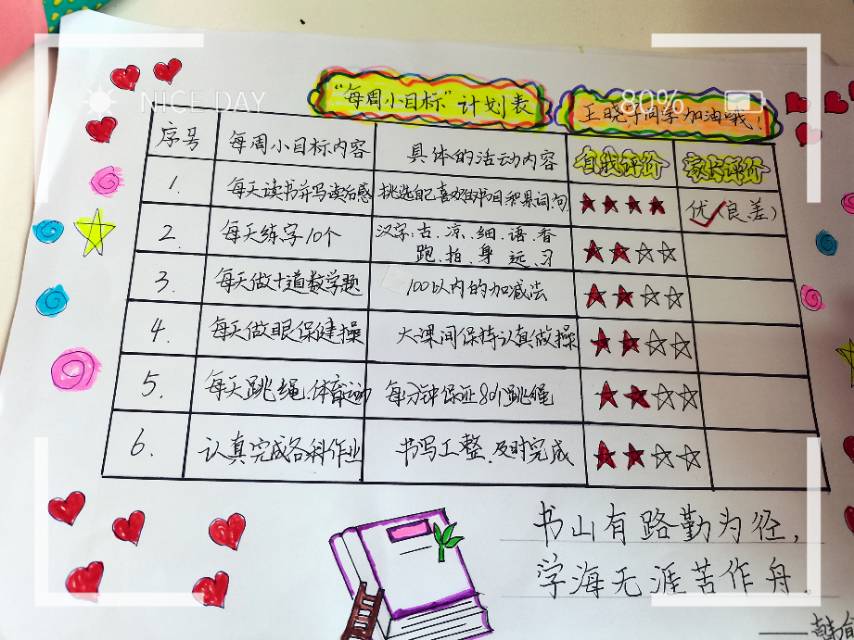 NICE DAY
80%
"每周小目标"计划表
王晓 同学加油哦！
序号 每周小目标内容 具体的活动内容 自我评价 家长评价
1. 每天读书并写读后感 挑选自己喜欢的书目积累词句 优(良差)
2. 每天练字10个 汉字:古、凉、细、语、香
跑、拍、身、远、习
3. 每天做十道数学题 100以内的加减法
4. 每天做眼保健操 大课间保持认真做操
5. 每天跳绳、体育运动 每分钟保证80个跳绳
6. 认真完成各科作业 书写工整、及时完成
书山有路勤为径，
学海无涯苦作舟。